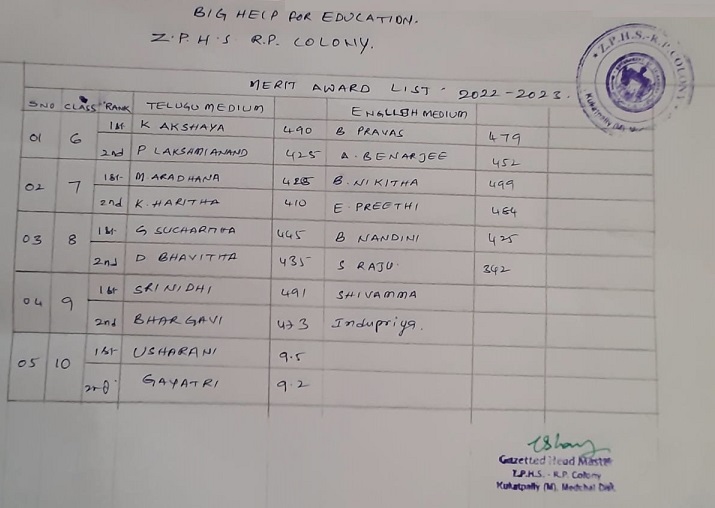 BIG HELP FOR EDUCATION.
Z.P.H.S R.P. COLONY.
MERIT AWARD LIST - 2022-2023.
SNO CLASS RANK TELUGU MEDIUM ENGLISH MEDIUM
01 6 1st K AKSHAYA 490 B PRAVAS 479
2nd P LAKSHMIANAND 425 A. BENARJEE 452
02 7 1st M. ARADHANA B. NIKITHA 499
2nd K. HARITHA 410 E. PREETHI 464
03 8 1st G SUCHARITHA 445 B NANDINI 425
2nd D BHAVITHA 435 S RAJU. 342
04 9 1st SRINIDHI 491 SHIVAMMA
2nd BHARGAVI 473 Indupriya.
05 10 1st USHARANI 9.5
2nd GAYATRI 9.2
Z.P.H.S.-R.P.COLONY
Kukatpally (M),
Gazetted Head Master
Z.P.H.S. - R.P. Colony
Kukatpally (M). Medchal Dist.